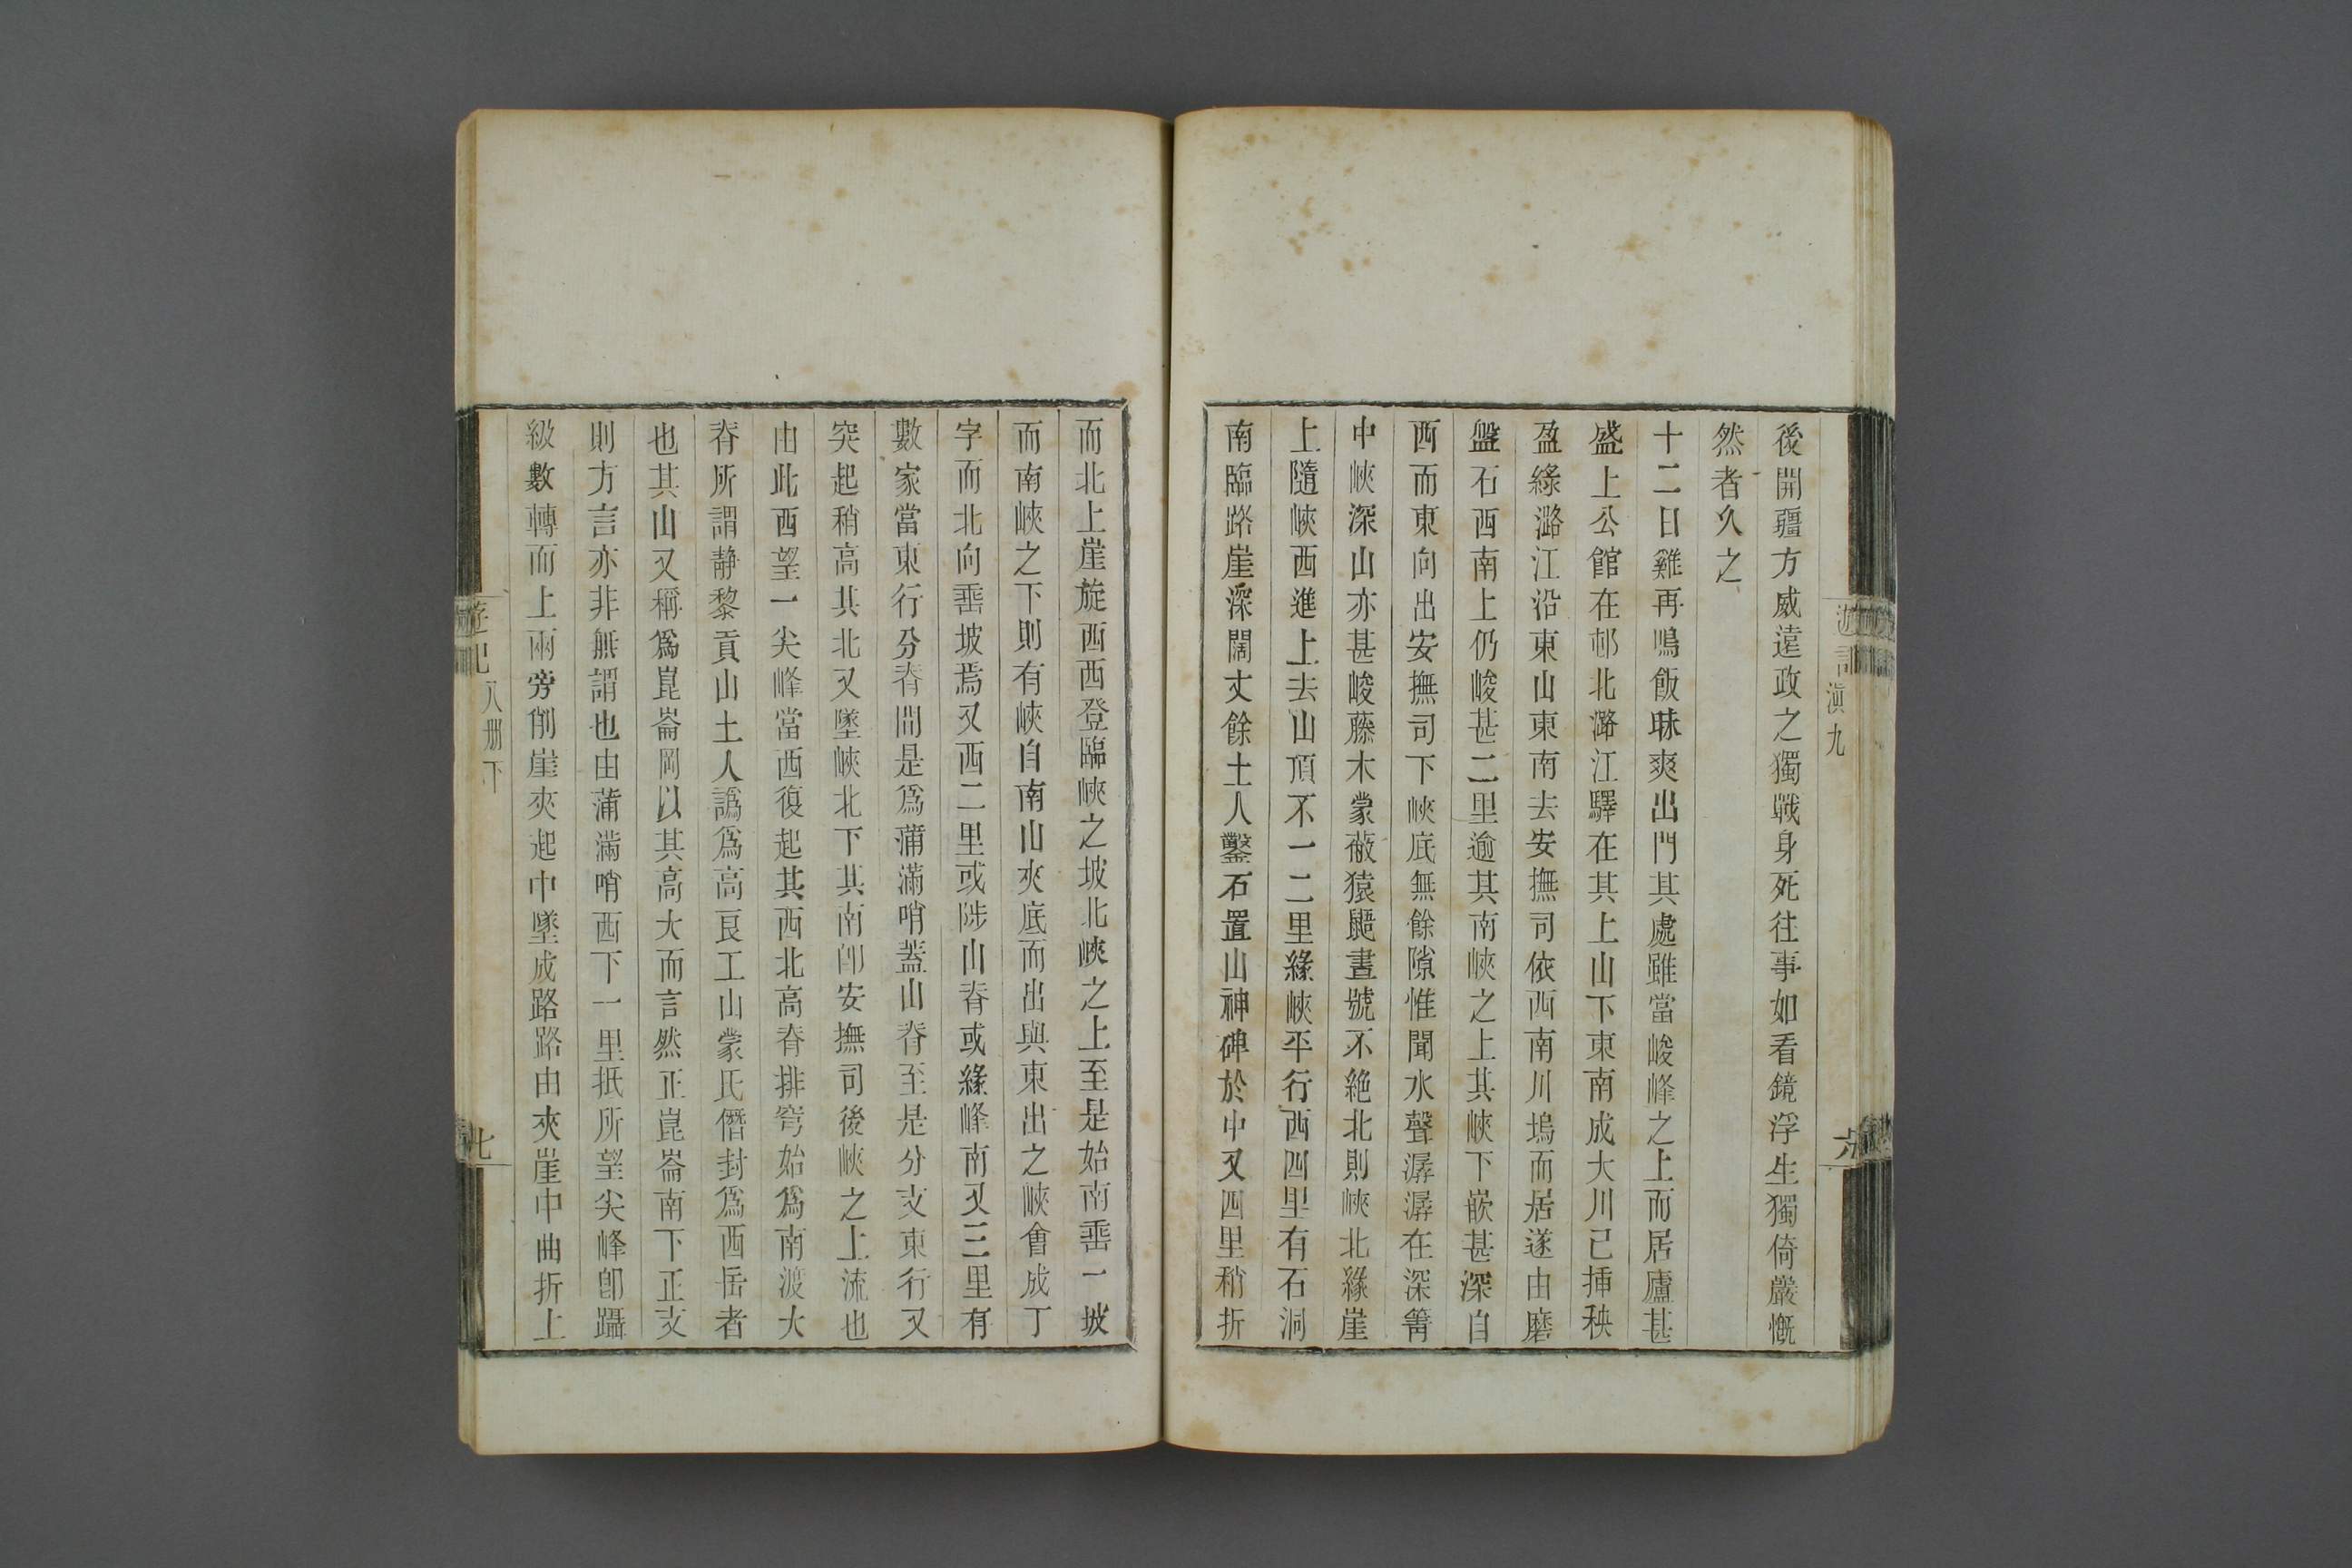 遊記
滇九
六
後開疆方威遠政之獨戰身死往事如看鏡浮生獨倚嚴慨
然者久之
十二日雞再鳴飯昧爽出門其處雖當峻峰之上而居廬甚
盛上公館在邨北潞江驛在其上山下東南成大川已揷秧
盈綠潞江沿東山東南去安撫司依西南川塢而居遂由磨
盤石西南上仍峻甚二里逾其南峽之上其峽下嵌甚深自
西而東向出安撫司下峽底無餘隙惟聞水聲潺潺在深箐
中峽深山亦甚峻藤木蒙蔽猿鼯晝號不絶北則峽北緣崖
上隨峽西進上去山頂不一二里緣峽平行西四里有石洞
南臨路崖深闊丈餘土人鑿石置山神碑於中又四里稍折
而北上崖旋西西登臨峽之坡北峽之上至是始南垂一坡
而南峽之下則有峽自南山夾底而出與東出之峽會成丁
字而北向垂坡焉又西二里或陟山脊或緣峰南又三里有
數家當東行分脊間是爲蒲滿哨蓋山脊至是分支東行又
突起稍高其北又墜峽北下其南卽安撫司後峽之上流也
由此西望一尖峰當西復起其西北高脊排穹始爲南渡大
脊所謂靜黎貢山土人譌爲高良工山蒙氏僭封爲西岳者
也其山又稱爲崑崙岡以其高大而言然正崑崙南下正支
則方言亦非無謂也由蒲滿哨西下一里抵所望尖峰卽躡
級數轉而上兩旁削崖夾起中墜成路路由夾崖中曲折上
遊記
八册下
七